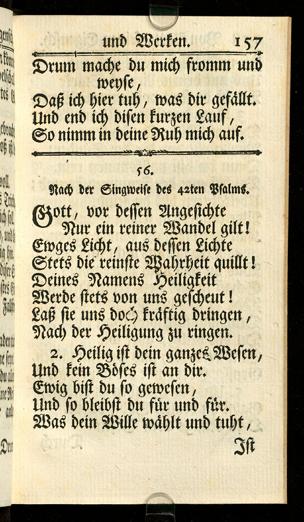 und Werken. 157
Drum mache du mich fromm und
weyse,
Daß ich hier tuh, was dir gefällt.
Und end ich disen kurzen Lauf,
So nimm in deine Ruh mich auf.
56.
Nach der Singweise des 42ten Psalms.
Gott, vor dessen Angesichte
Nur ein reiner Wandel gilt!
Ewges Licht, aus dessen Lichte
Stets die reinste Wahrheit quillt!
Deines Namens Heiligkeit
Werde stets von uns gescheut!
Laß sie uns doch kräftig dringen,
Nach der Heiligung zu ringen.
2. Heilig ist dein ganzes Wesen,
Und kein Böses ist an dir.
Ewig bist du so gewesen,
Und so bleibst du für und für.
Was dein Wille wählt und tuht,
Ist